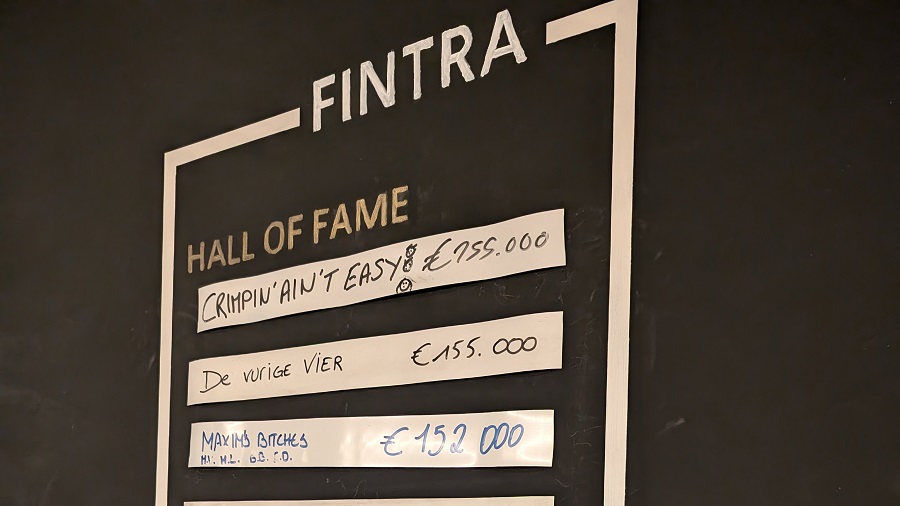 FINTRA
HALL OF FAME
CRIMPIN' AIN'T EASY! €155.000
De vurige Vier €155.000
MAXIM'S BITCHES €152 000